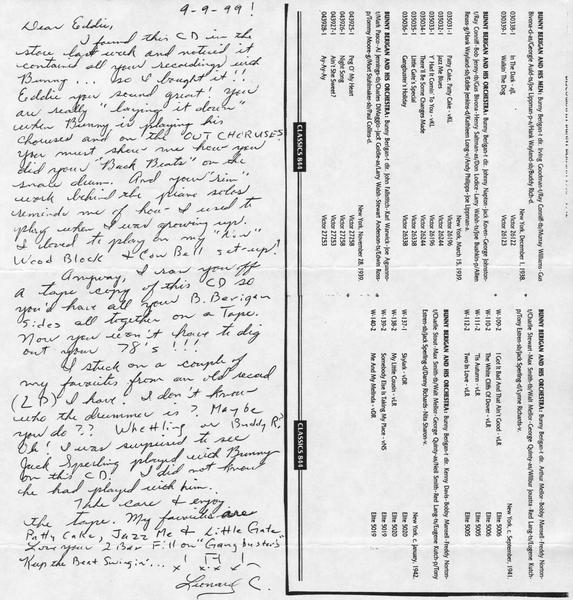 9-9-99!
Dear Eddie,
I found this CD in the
store last week and noticed it
contained all your recordings with
Bunny — so I bought it!!
Eddie you sound great! You
are really "laying it down"
when Bunny is playing his
choruses and on the "OUT CHORUSES"
You must show me how you
did your "Back Beats" on the
snare drum. And your "rim"
work behind the piano solos
reminds me of how I used to
play when I was growing up.
I loved to play on my
Wood Block & Cow Bell set-up!
Anyway, I
a tape copy of this CD so
you'd have all your B. Berigan
sides all together on a Tape.
Now you won't have to dig
out your 78's!!!
I stuck on a couple of
my favorites from an old record
(LP) I have. I don't know
who the drummer is? Maybe
you do?? Wettling or Buddy R?
Oh! I was surprised to see
Jack Sperling played with Bunny
on this CD. I did not know
he had played with him.
Take care & enjoy
the tape. My favorites are
Patty Cake, Jazz Me & Little Gate
Love your 2 Bar Fill on "Gangbusters"
Keep the Beat Swingin'...
Leonard C.
BUNNY BERIGAN AND HIS MEN: Bunny Berigan-t dir. Irving Goodman-t/Ray Conniff-tb/Murray Williams- Gus
Bivona-cl-as/Georgie Auld-ts/Joe Lippman-p-a/Hank Wayland-sb/Buddy Rich-d.
New York, December 1, 1938.
030338-1 In The Dark - aJL Victor 26122
030339-1 Walkin' The Dog Victor 26123
BUNNY BERIGAN AND HIS ORCHESTRA: Bunny Berigan-t dir. Johnny Napton- Jack Koven- George Johnston-
t/Ray Conniff- Bob Jenny-tb/Gus Bivona- Henry Saltman-as/Don Lodice- Larry Walsh-ts/Joe Bushkin-p/Allen
Reuss-g/Hank Wayland-sb/Eddie Jenkins-d/Kathleen Lane-v/Andy Phillips- Joe Lippman-a.
New York, March 15, 1939.
035031-1 Patty Cake, Patty Cake - vKL Victor 26196
035032-1 Jazz Me Blues Victor 26244
035033-1 Y' Had It Comin' To You - vKL Victor 26196
035034-1 There'll Be Some Changes Made Victor 26244
035035-1 Little Gate's Special Victor 26338
035036-1 Gangbuster's Holiday Victor 26338
CLASSICS 844
BUNNY BERIGAN AND HIS ORCHESTRA: Bunny Berigan-t dir. John Fallstitch- Karl Warwick- Joe Aguanno-
t/Mark Pasco- Al Jennings-tb/Charles DiMaggio- Jack Goldie-as/Larry Walsh- Stuart Anderson-ts/Edwin Ross-
p/Tommy Moore-g/Morton Stuhlmaker-sb/Paul Collins-d.
New York, November 28, 1939.
043925-1 Peg O' My Heart Victor 27258
043926-1 Night Song Victor 27258
043927-1 Ain't She Sweet? Victor 27253
043928-1 Ay-Ay-Ay Victor 27253
BUNNY BERIGAN AND HIS ORCHESTRA: Bunny Berigan-t dir. Arthur Mellor- Bobby Mansell- Freddy Norton-
t/Charlie Stewart- Max Smith-tb/Walt Mellor- George Quinty-as/Wilbur Joustra- Red Lang-ts/Eugene Kutch-
p/Tony Estren-sb/Jack Sperling-d/Lynne Richards-v.
New York, c. September, 1941.
W-109-2 I Got It Bad And That Ain't Good - vLR Elite 5006
W-110-2 The White Cliffs Of Dover - vLR Elite 5006
W-111-2 'Tis Autumn - vLR Elite 5005
W-112-2 Two In Love - vLR Elite 5005
CLASSICS 844
BUNNY BERIGAN AND HIS ORCHESTRA: Bunny Berigan-t dir. Kenny Davis- Bobby Mansell- Freddy Norton-
t/Charlie Stewart- Max Smith-tb/Walt Mellor- George Quinty-as/Neil Smith- Red Lang-ts/Eugene Kutch-p/Tony
Estren-sb/Jack Sperling-d/Danny Richards- Nita Sharon-v.
New York, c. January, 1942.
W-137-1 Skylark - vDR Elite 5020
W-138-2 My Little Cousin - vLR Elite 5020
W-139-2 Somebody Else Is Taking My Place - vNS Elite 5019
W-140-2 Me And My Melinda - vDR Elite 5019